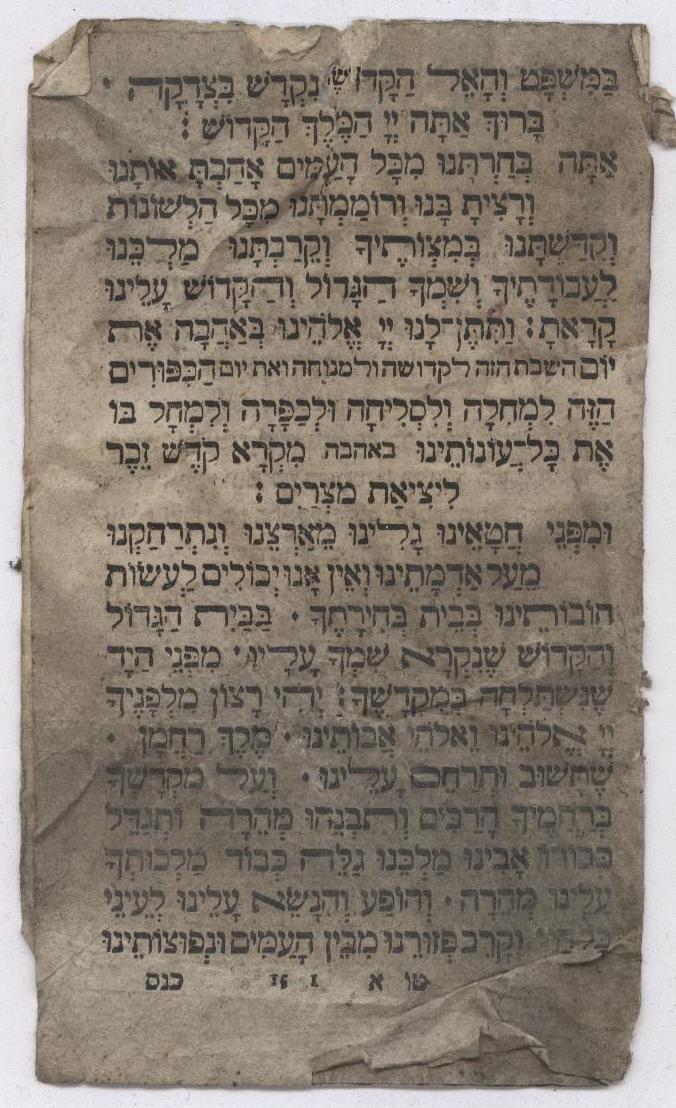 בַּמִּשְׁפָּט וְהָאֵל הַקָּדוֹשׁ נִקְדָּשׁ בִּצְדָקָה ·
בָּרוּךְ אַתָּה יְיָ הַמֶּלֶךְ הַקָּדוֹשׁ :
אַתָּה בְחַרְתָּנוּ מִכָּל הָעַמִּים אָהַבְתָּ אוֹתָנוּ
וְרָצִיתָ בָּנוּ וְרוֹמַמְתָּנוּ מִכָּל הַלְּשׁוֹנוֹת
וְקִדַּשְׁתָּנוּ בְּמִצְוֹתֶיךָ וְקֵרַבְתָּנוּ מַלְכֵּנוּ
לַעֲבוֹדָתֶיךָ וְשִׁמְךָ הַגָּדוֹל וְהַקָּדוֹשׁ עָלֵינוּ
קָרָאתָ : וַתִּתֶּן־לָנוּ יְיָ אֱלֹהֵינוּ בְּאַהֲבָה אֶת
יוֹם השבת הזה לקדושה ולמנוחה ואת יום הַכִּפּוּרִים
הַזֶּה לִמְחִלָה וְלִסְלִיחָה וּלְכַפָּרָה וְלִמְחָל בּוֹ
אֶת כָּל־עֲוֹנוֹתֵינוּ באהבה מִקְרָא קֹדֶשׁ זֵכֶר
לִיצִיאַת מִצְרָיִם :
וּמִפְּנֵי חֲטָאֵינוּ גָלִינוּ מֵאַרְצֵנוּ וְנִתְרַחַקְנוּ
מֵעַל אַדְמָתֵינוּ וְאֵין אָנוּ יְכוֹלִים לַעֲשׂוֹת
חוֹבוֹתֵינוּ בְּבֵית בְּחִירָתֶךָ · בַּבַּיִת הַגָּדוֹל
וְהַקָּדוֹשׁ שֶׁנִּקְרָא שִׁמְךָ עָלָיו · מִפְּנֵי הַיָּד
שֶׁנִּשְׁתַּלְּחָה בְּמִקְדָּשֶׁךָ : יְהִי רָצוֹן מִלְּפָנֶיךָ
יְיָ אֱלֹהֵינוּ וֵאלֹהֵי אֲבוֹתֵינוּ · מֶלֶךְ רַחֲמָן ·
שֶׁתָּשׁוּב וּתְרַחֵם עָלֵינוּ · וְעַל מִקְדָּשְׁךָ
בְּרַחֲמֶיךָ הָרַבִּים וְתִבְנֵהוּ מְהֵרָה וּתְגַדֵּל
כְּבוֹדוֹ אָבִינוּ מַלְכֵּנוּ גַּלֵּה כְּבוֹד מַלְכוּתְךָ
עָלֵינוּ מְהֵרָה · וְהוֹפַע וְהִנָּשֵׂא עָלֵינוּ לְעֵינֵי
כָּל־חָי · וְקָרֵב פְּזוּרֵנוּ מִבֵּין הָעַמִּים וּנְפוּצוֹתֵינוּ
טו א 1 15 כנס